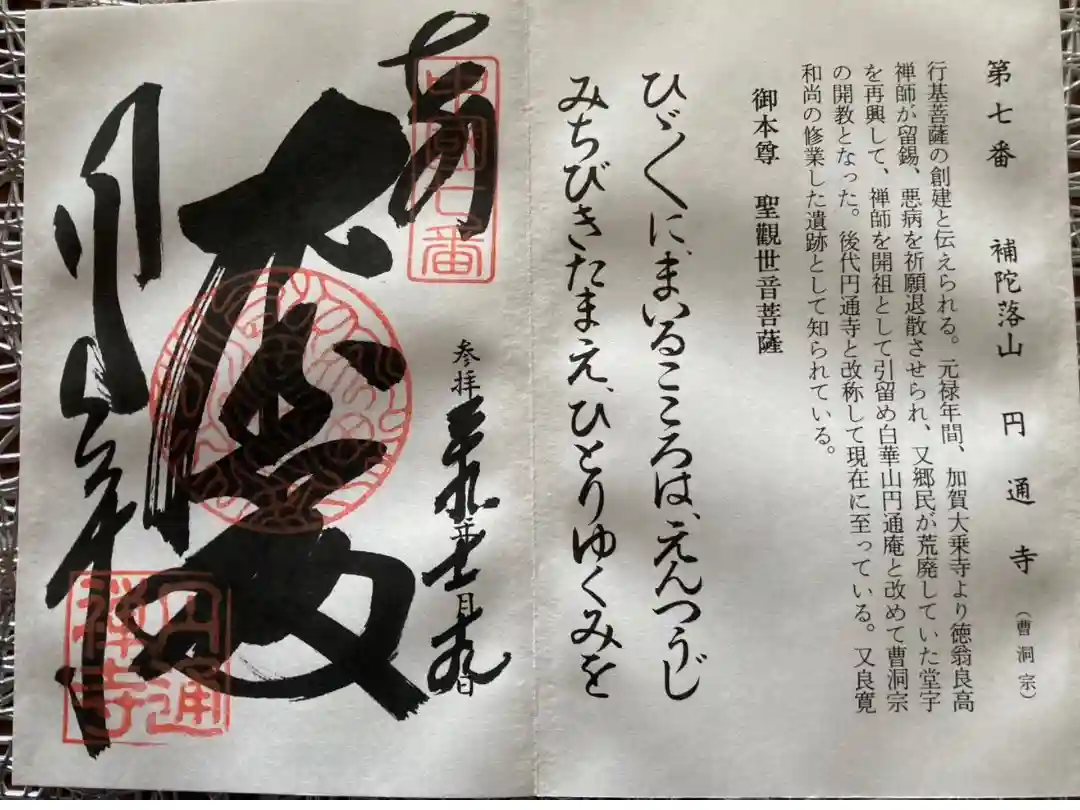 第七番 補陀落山 円通寺（曹洞宗）
行基菩薩の創建と伝えられる。元禄年間、加賀大乗寺より徳翁良高
禅師が留錫、悪病を祈願退散させられ、又郷民が荒廃していた堂宇
を再興して、禅師を開祖として引留め白華山円通庵と改めて曹洞宗
の開教となった。後代円通寺と改称して現在に至っている。又良寛
和尚の修業した遺跡として知られている。
御本尊 聖觀世音菩薩
ひゞ〳〵に、まいるこころは、えんつうじ
みちびきたまえ、ひとりゆくみを
中國七番
参拝 年 月 日
円通
禅寺